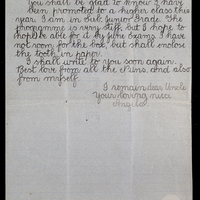 You shall be glad to know I have
been promoted to a higher class this
year. I am in Sub. Junior Grade. The
programme is very stiff, but I hope to
be able for it by June Exams. I have
not room for the box, but shall enclose
the tooth in paper.
I shall write to you soon again.
Best love from all the Nuns, and also
from myself.
I remain dear Uncle
Your loving niece
Angela.